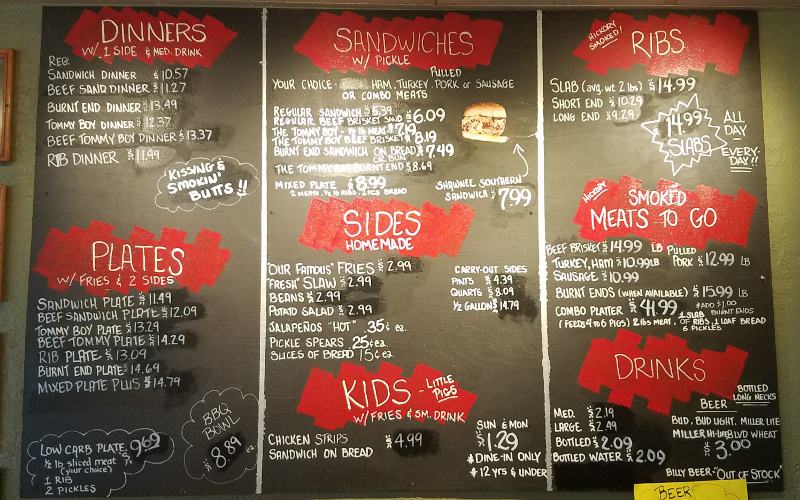 DINNERS
W/ 1 SIDE & MED. DRINK
REG.
SANDWICH DINNER $10.57
BEEF SAND DINNER $11.27
BURNT END DINNER $13.49
TOMMY BOY DINNER $12.37
BEEF TOMMY DINNER $13.37
RIB DINNER $11.99
KISSING &
SMOKIN'
BUTTS!!
PLATES
W/ FRIES & 2 SIDES
SANDWICH PLATE $11.49
BEEF SANDWICH PLATE $12.09
TOMMY BOY PLATE $13.29
BEEF TOMMY PLATE $14.29
RIB PLATE $13.09
BURNT END PLATE $14.69
MIXED PLATE PLUS $14.79
LOW CARB PLATE $9.69
1/2 lb sliced meat
(your choice)
1 RIB
2 PICKLES
BBQ
BOWL
$8.89 ea.
SANDWICHES
W/ PICKLE
YOUR CHOICE - HAM, TURKEY, PULLED PORK or SAUSAGE
OR COMBO MEATS
REGULAR SANDWICH $5.39
REGULAR BEEF BRISKET SAND $6.09
THE TOMMY BOY - MEAT $7.19
THE TOMMY BOY BEEF BRISKET $8.19
BURNT END SANDWICH ON BREAD $7.49
OR BUN
THE TOMMY BOY BURNT END $8.69
MIXED PLATE $8.99
2 MEATS, 1/2 lb RIBS, 2 PCS BREAD
SHAWNEE SOUTHERN
SANDWICH $7.99
SIDES
HOMEMADE
"OUR FAMOUS" FRIES $2.99
"FRESH" SLAW $2.99
BEANS $2.99
POTATO SALAD $2.99
JALAPEÑOS "HOT" .35¢ ea.
PICKLE SPEARS .25¢ ea.
SLICES OF BREAD 15¢ ea.
CARRY-OUT SIDES
PINTS $4.39
QUARTS $8.09
1/2 GALLON $14.79
KIDS - LITTLE PIGS
W/ FRIES & SM. DRINK
CHICKEN STRIPS
SANDWICH ON BREAD
$4.99
SUN & MON
$1.29
*DINE-IN ONLY
*12 YRS & UNDER
HICKORY
SMOKED!
RIBS
SLAB (avg. wt. 2 lbs) $14.99
SHORT END $10.29
LONG END $9.29
$14.99
SLABS
ALL
DAY
EVERY-
DAY!!
HICKORY
SMOKED
MEATS TO GO
BEEF BRISKET $14.99 LB
TURKEY, HAM $10.99 LB
PULLED
PORK $12.99 LB
SAUSAGE $10.99
BURNT ENDS (WHEN AVAILABLE) $15.99 LB
COMBO PLATTER $41.99
*ADD $1.00
BURNT ENDS
(FEEDS 4 TO 6 PIGS) 2 lbs MEAT, 1 SLAB OF RIBS, 1 LOAF BREAD
6 PICKLES
DRINKS
MED. $2.19
LARGE $2.49
BOTTLED $2.09
BOTTLED WATER $2.09
BOTTLED
LONG NECKS
BEER
BUD, BUD LIGHT, MILLER LITE
MILLER Hi-Life BLVD WHEAT
$3.00
BILLY BEER - "OUT OF STOCK"
BEER